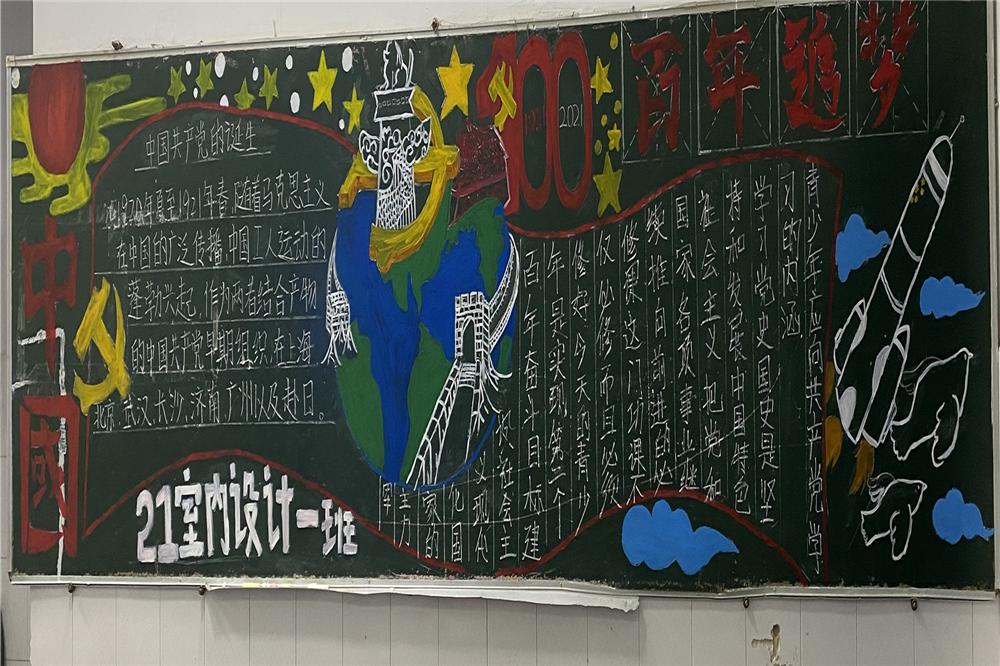 百年追梦
100
1921 2021
中國
中国共产党的诞生
1920年夏至1921年春,随着马克思主义
在中国的广泛传播,中国工人运动的
蓬勃兴起,作为两者结合产物
的中国共产党早期组织,在上海
北京、武汉、长沙、济南、广州以及赴日。
21室内设计一班
青少年应向共产党学
习的内涵
学习党史国史是坚
持和发展中国特色
社会主义把党和
国家各项事业继
续推向前进的必
修课这门功课不
仅必修而且必须
修好今天的青少
年是实现第二个
百年奋斗目标建
设社会主
义现代
化国
家的
主力
军